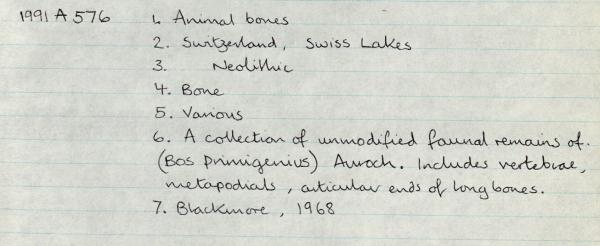 1991 A 576 1. Animal bones
2. Switzerland, Swiss Lakes
3. Neolithic
4. Bone
5. Various
6. A collection of unmodified faunal remains of.
(Bos primigenius) Auroch. Includes vertebrae,
metapodials, articular ends of long bones.
7. Blackmore, 1968